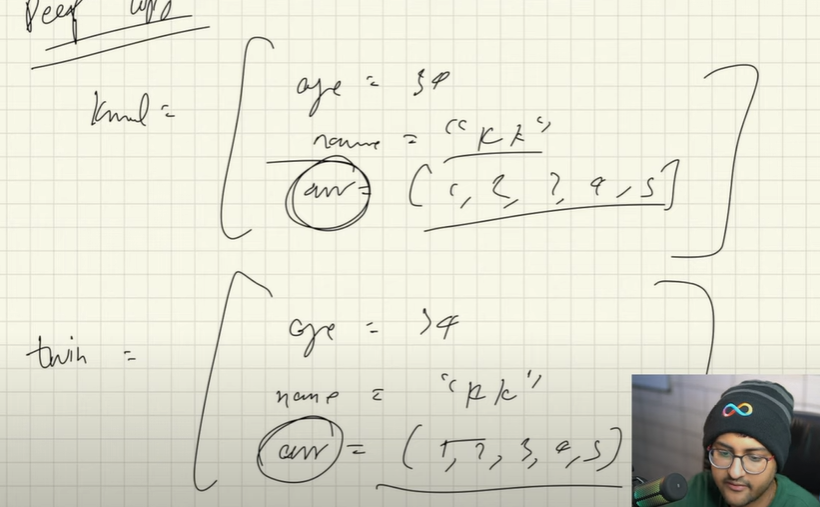 Deep copy
Kunal =
age = 34
name = "KK"
arr = [1, 2, 3, 4, 5]
twin =
age = 34
name = "KK"
arr = [1, 2, 3, 4, 5]